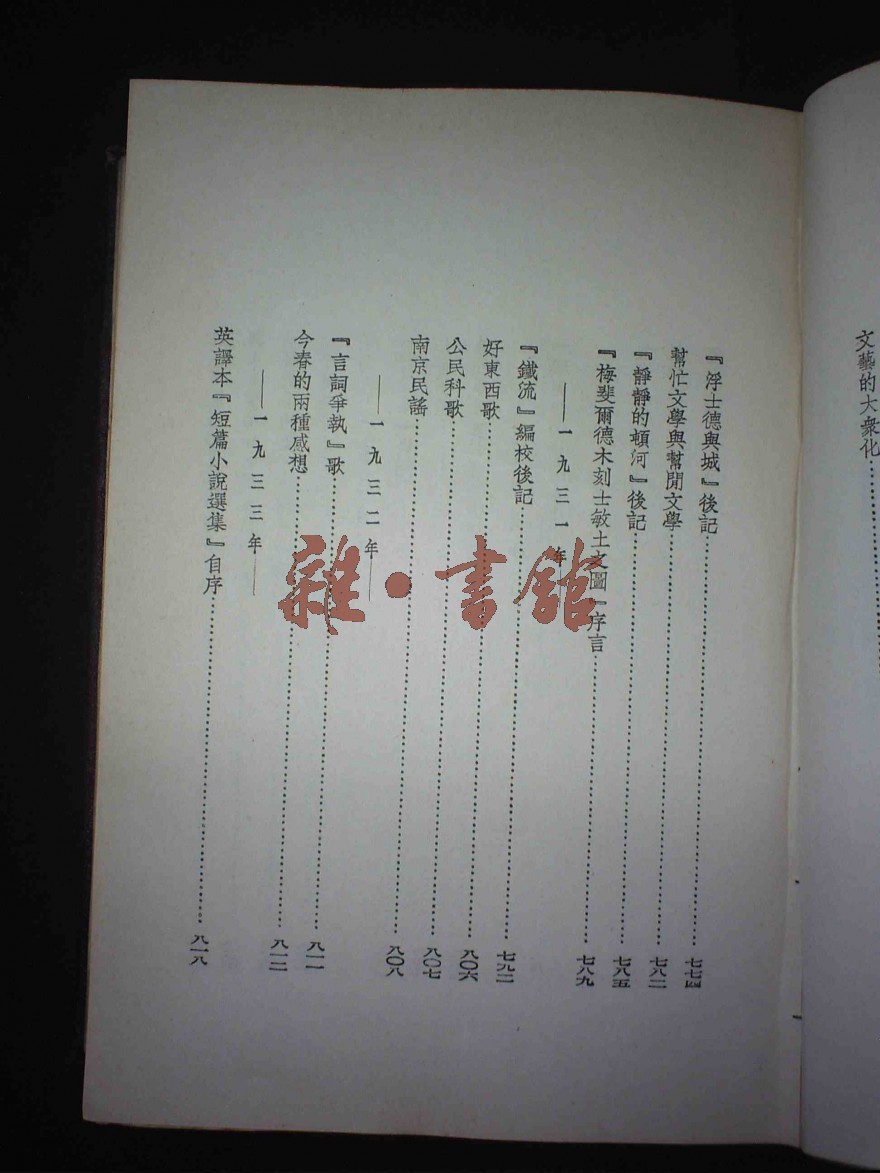 文藝的大衆化
『浮士德與城』後記……七七四
幫忙文學與幫閒文學……七八二
『靜靜的頓河』後記……七八五
『梅斐爾德木刻士敏土之圖』序言……七八九
——一九三一年
『鐵流』編校後記……七九二
好東西歌……八〇六
公民科歌……八〇七
南京民謠……八〇八
——一九三二年——
『言詞爭執』歌……八一一
今春的兩種感想……八一二
——一九三三年——
英譯本『短篇小說選集』自序……八一八
雜·書館